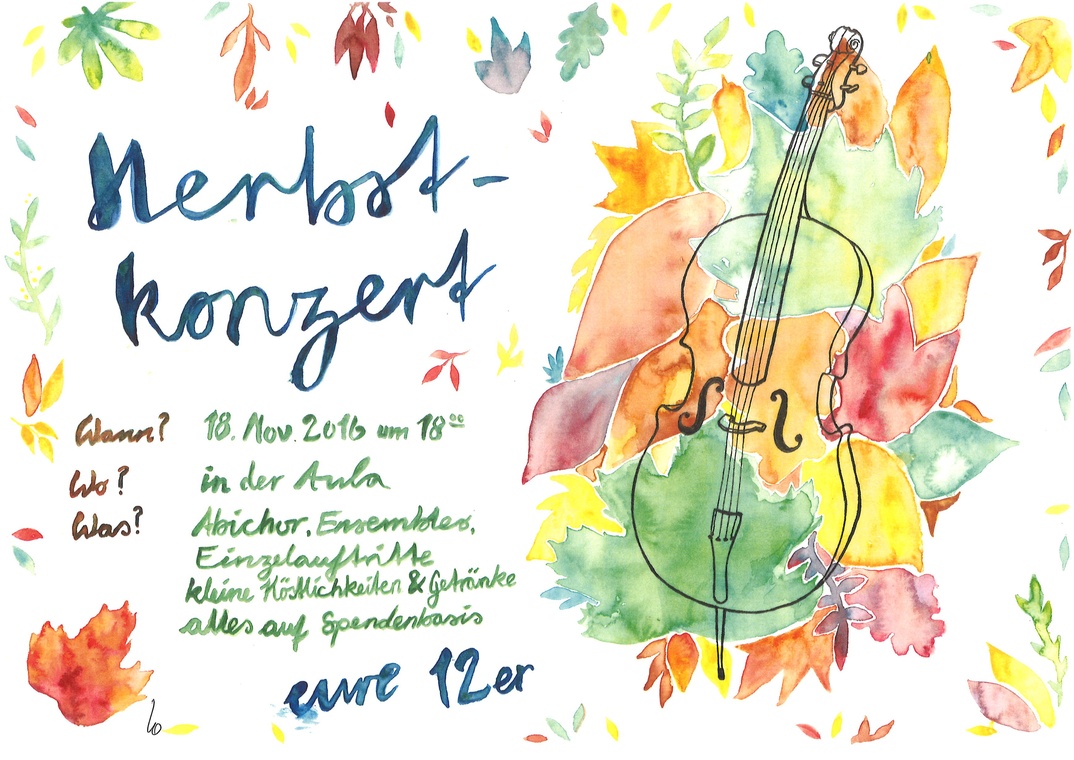 Herbst-
konzert
Wann? 18. Nov. 2016 um 18⁰⁰
Wo? in der Aula
Was? Abichor, Ensembles,
Einzelauftritte
kleine Köstlichkeiten & Getränke
alles auf Spendenbasis
eure 12er